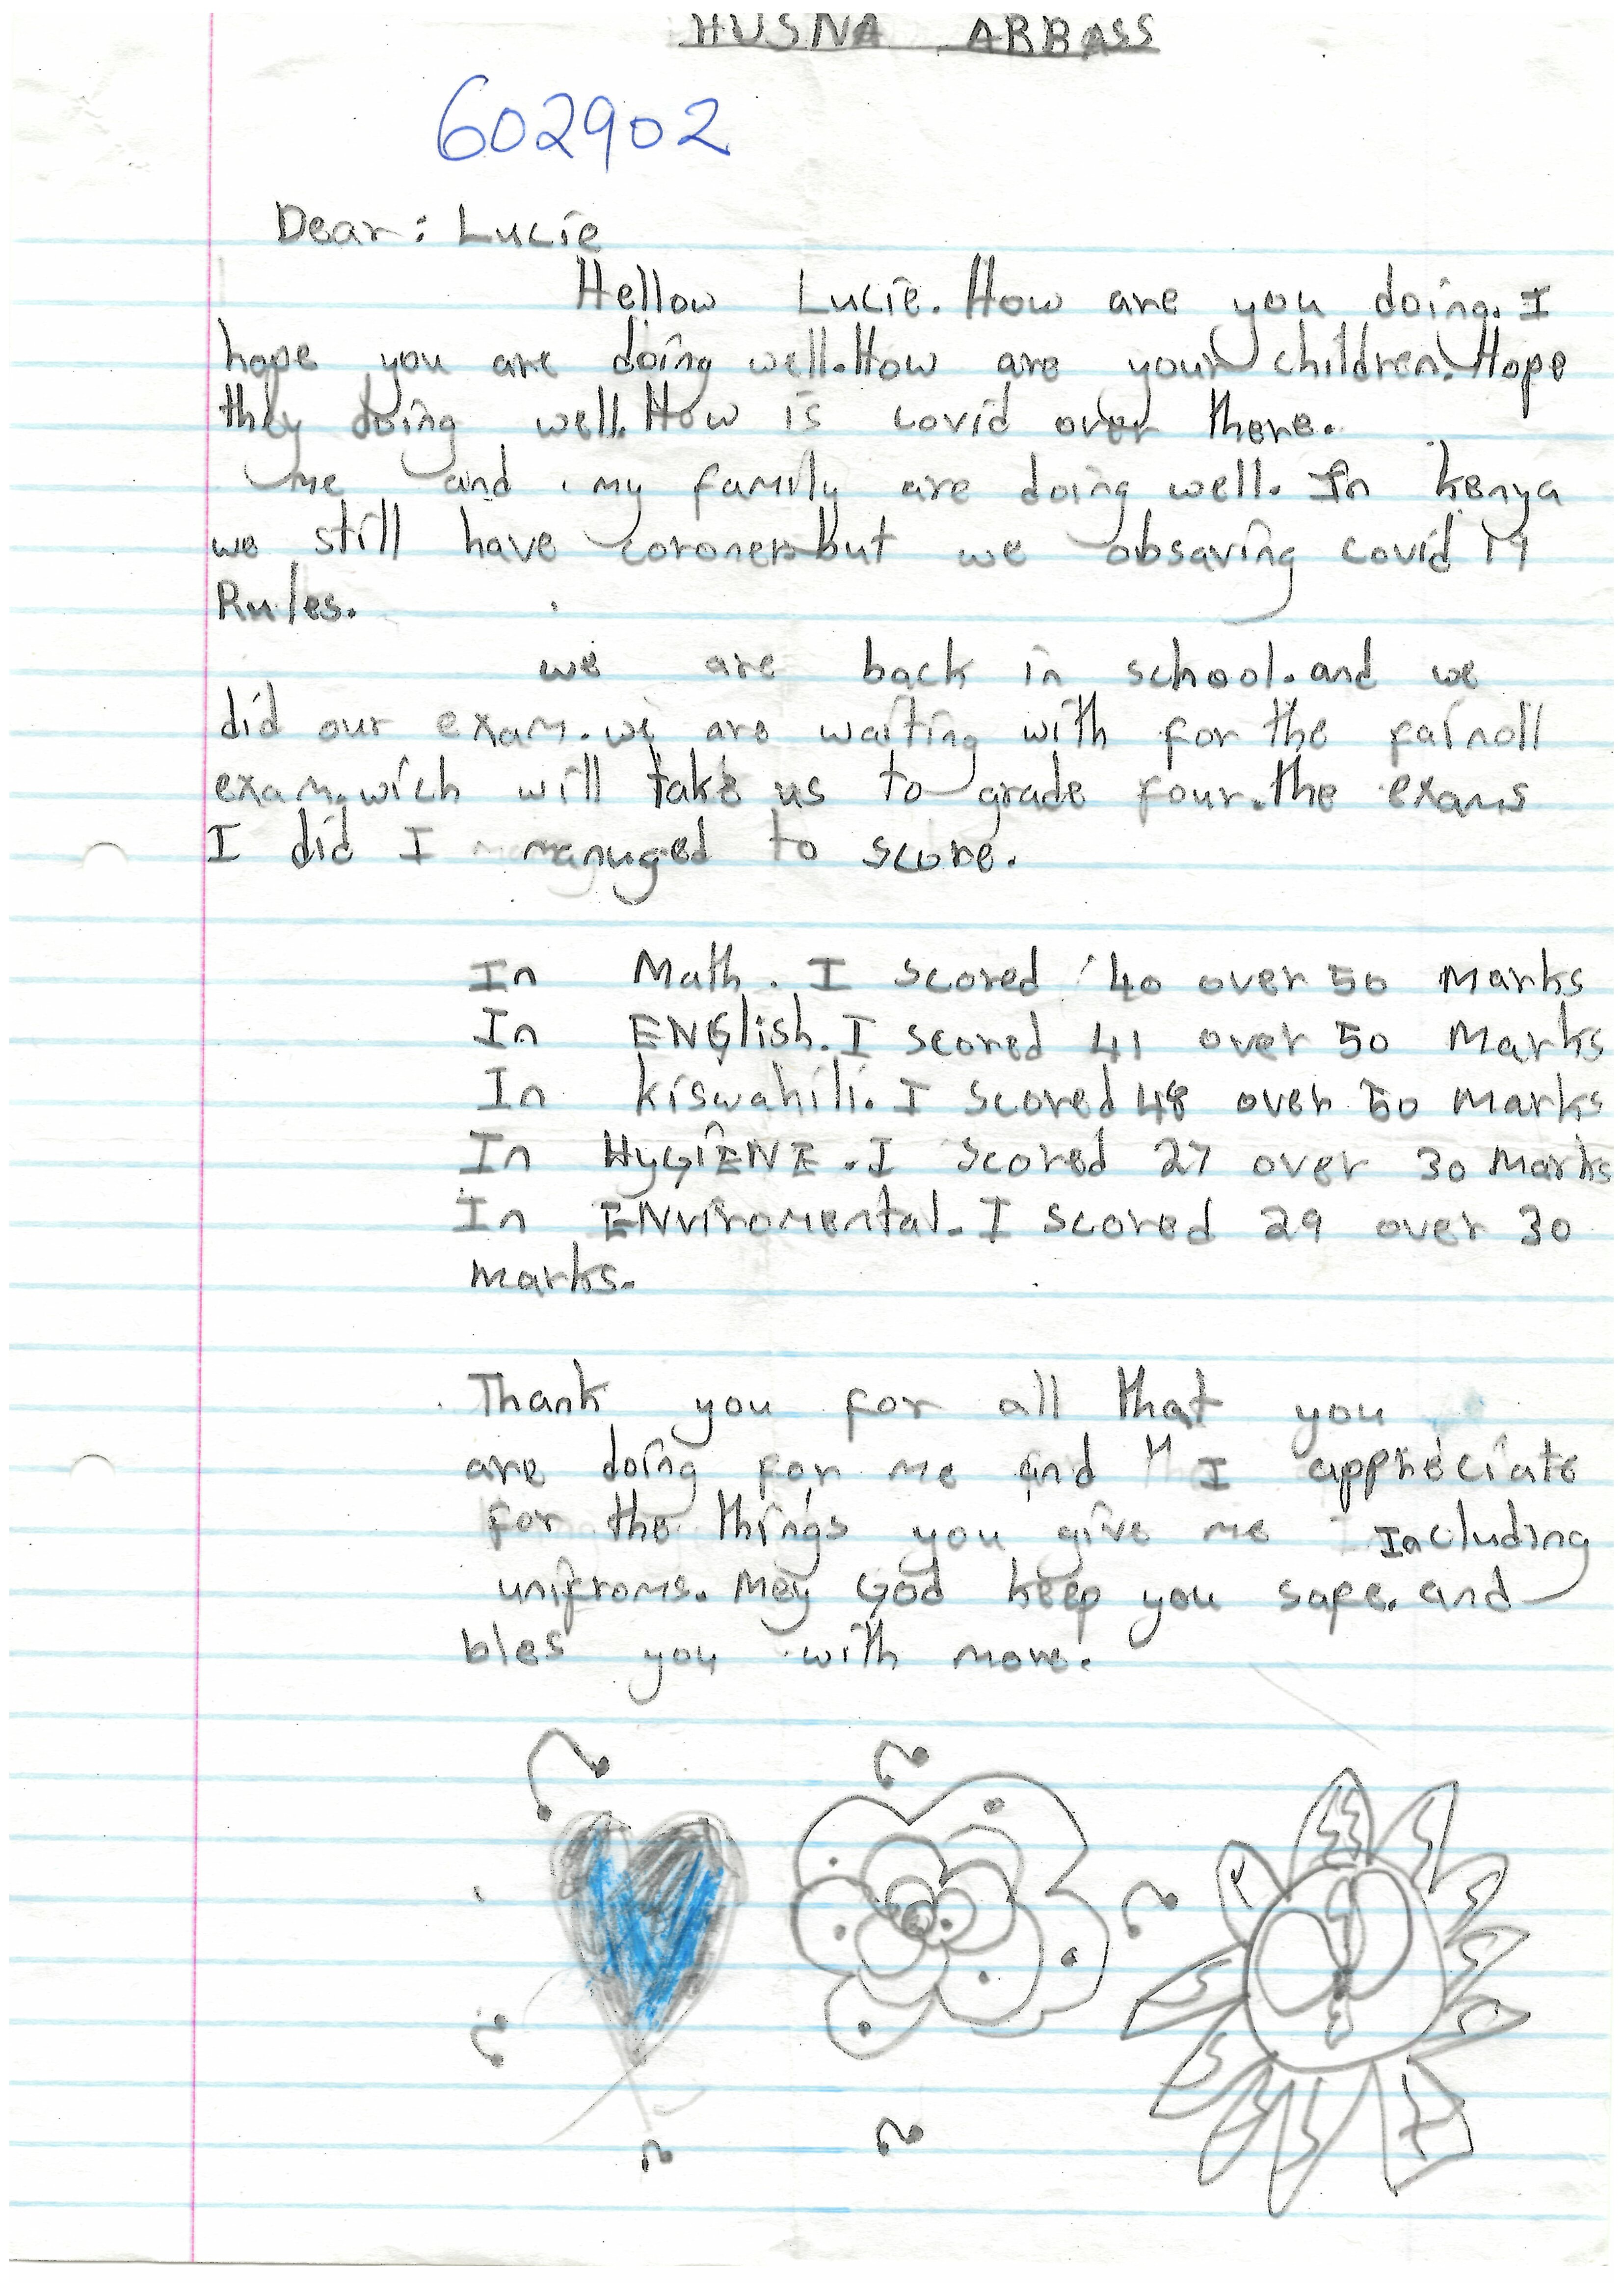 HUSNA ABBASS
602902
Dear: Lucie
Hellow Lucie. How are you doing. I
hope you are doing well. How are your children. Hope
they doing well. How is covid over there.
me and my family are doing well. In kenya
we still have coroner but we obsaving covid 19
Rules.
we are back in school. and we
did our exam. we are waiting with for the fainoll
exam. wich will take us to grade four. the exams
I did I manuged to score.
In Math. I scored 40 over 50 Marks
In ENGlish. I scored 41 over 50 Marks
In kiswahili. I scored 48 over 50 Marks
In HyGiENE. I scored 27 over 30 Marks
In ENviromental. I scored 29 over 30
marks.
Thank you for all that you
are doing for me and I appreciate
for the things you give me Including
unifroms. Mey God keep you safe. and
bles you with more.